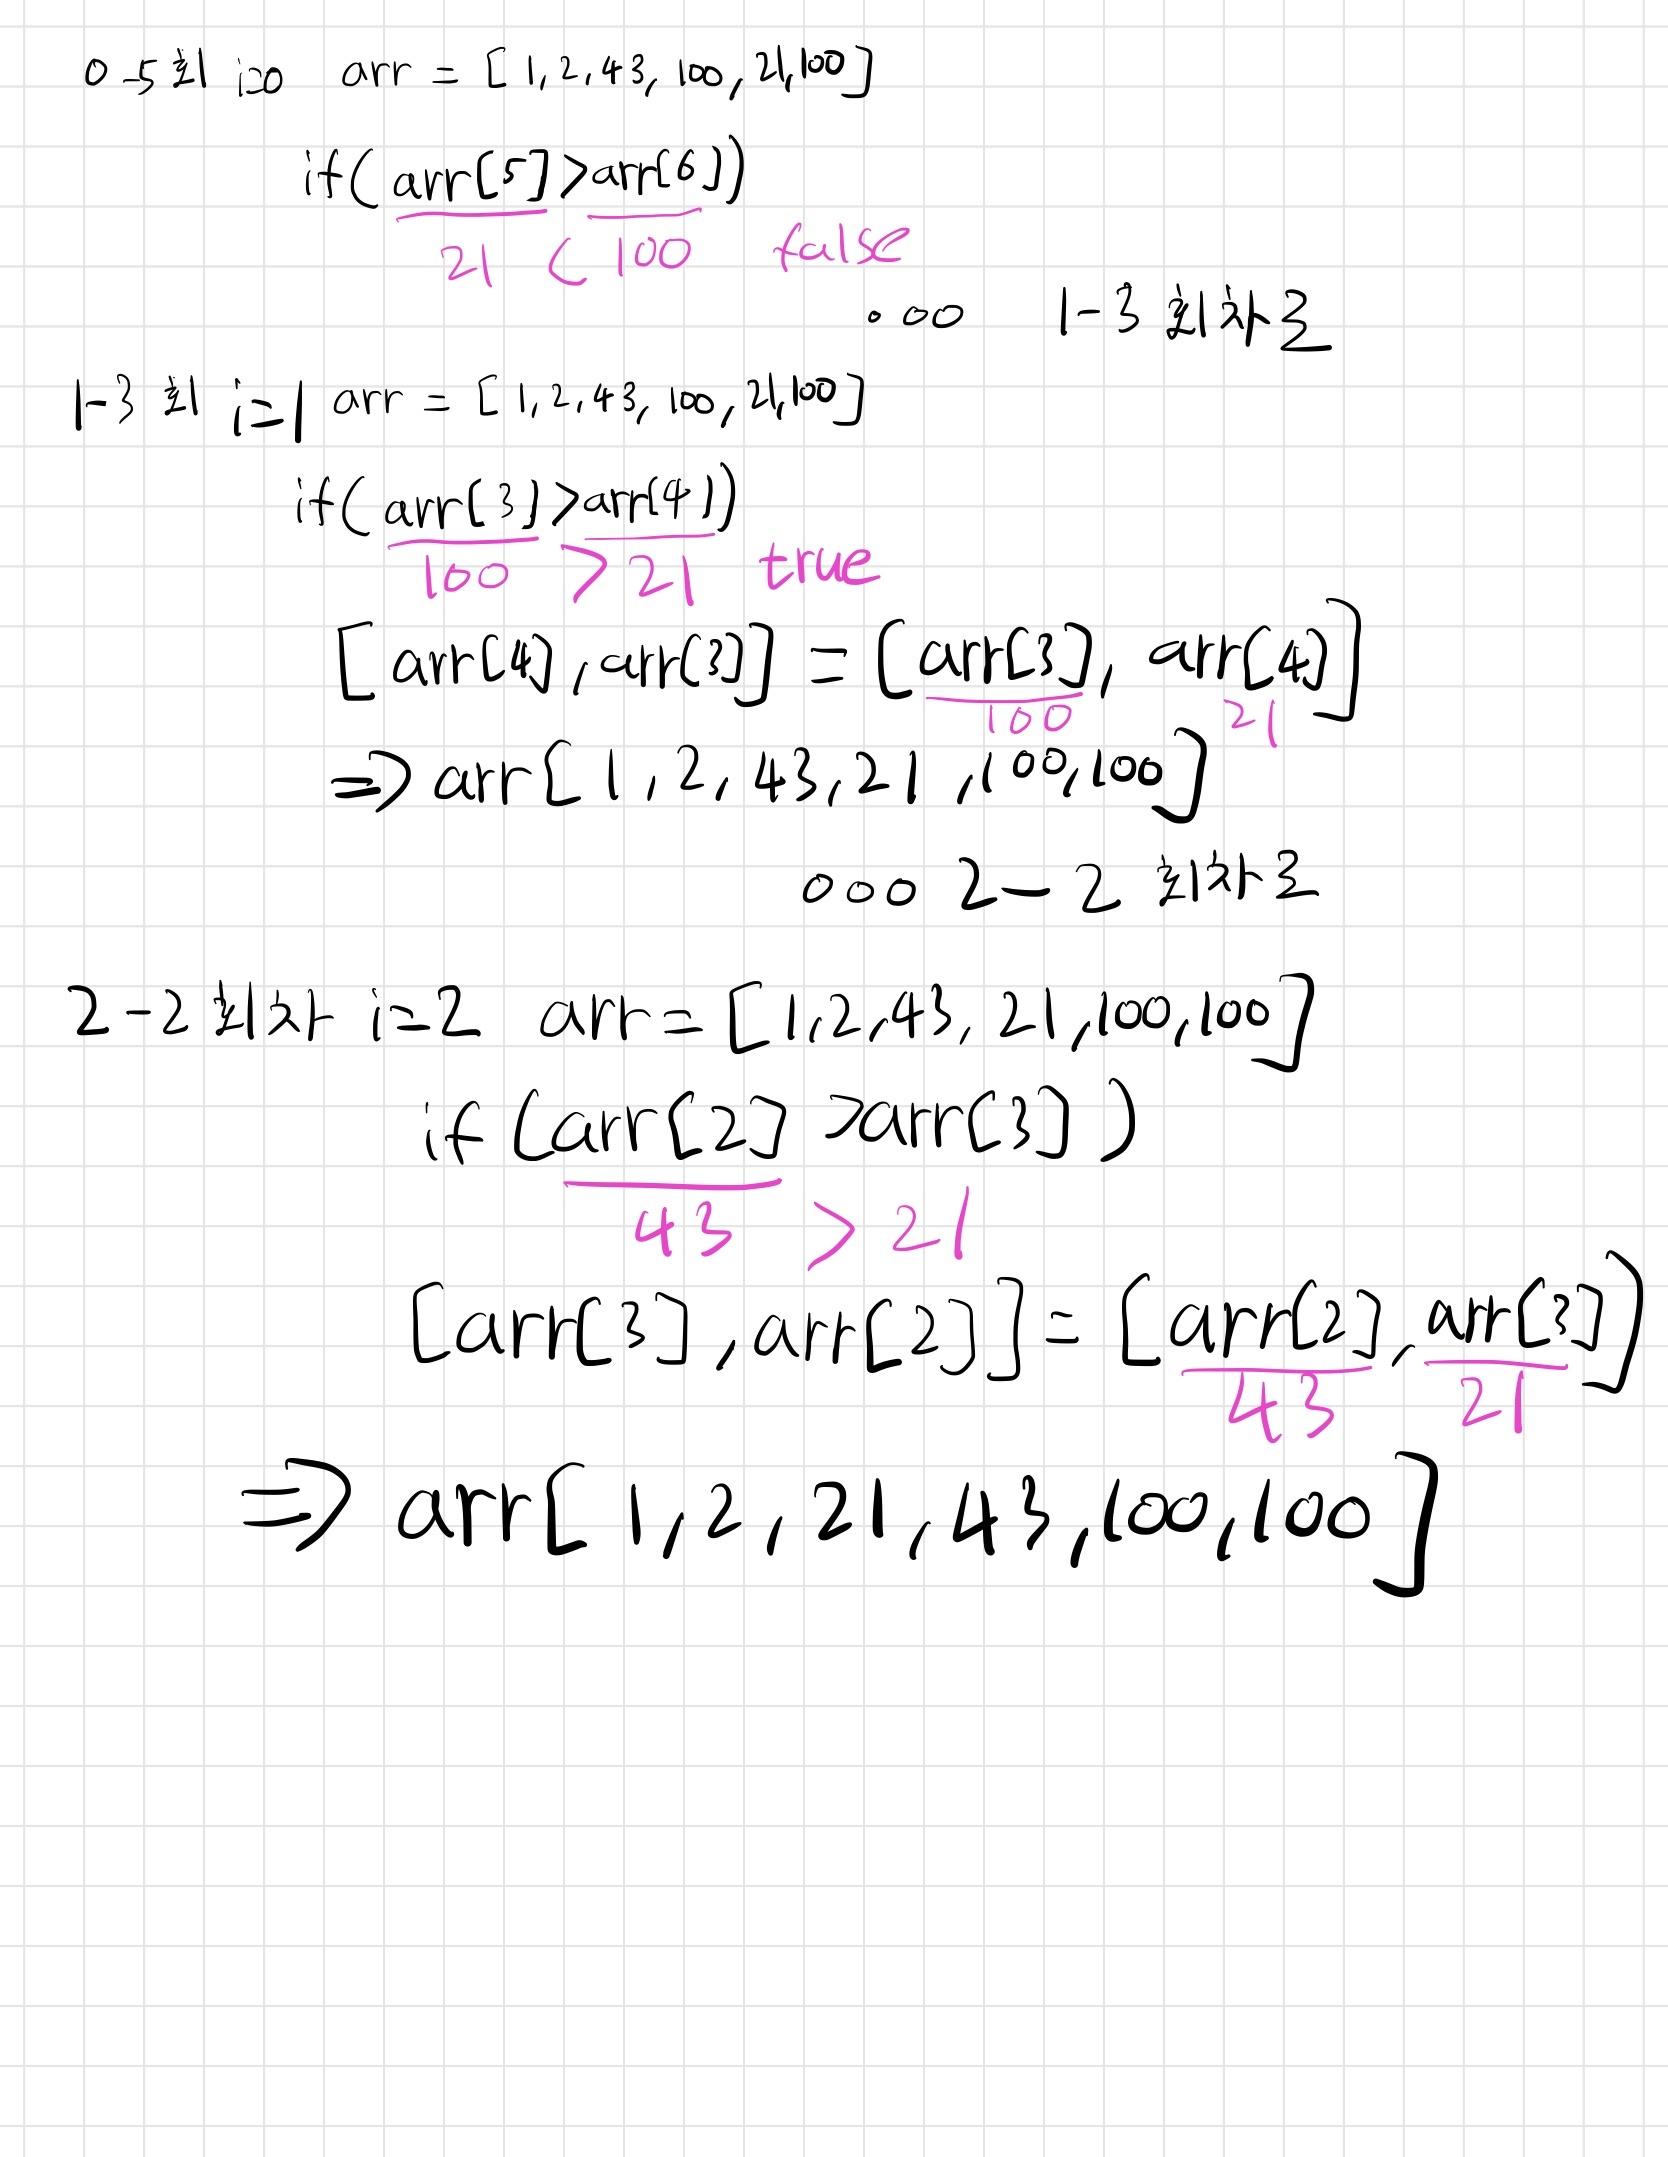 0-5회 i=0 arr = [1,2,43,100,21,100]
if(arr[5]>arr[6])
21 < 100 false
... 1-3 회차로
1-3 회 i=1 arr = [1,2,43,100,21,100]
if(arr[3]>arr[4])
100 > 21 true
[arr[4],arr[3]] = [arr[3], arr[4]]
100 21
=> arr[1,2,43,21,100,100]
... 2-2 회차로
2-2 회차 i=2 arr=[1,2,43,21,100,100]
if (arr[2] >arr[3])
43 > 21
[arr[3],arr[2]]=[arr[2],arr[3]]
43 21
=> arr[1,2,21,43,100,100]